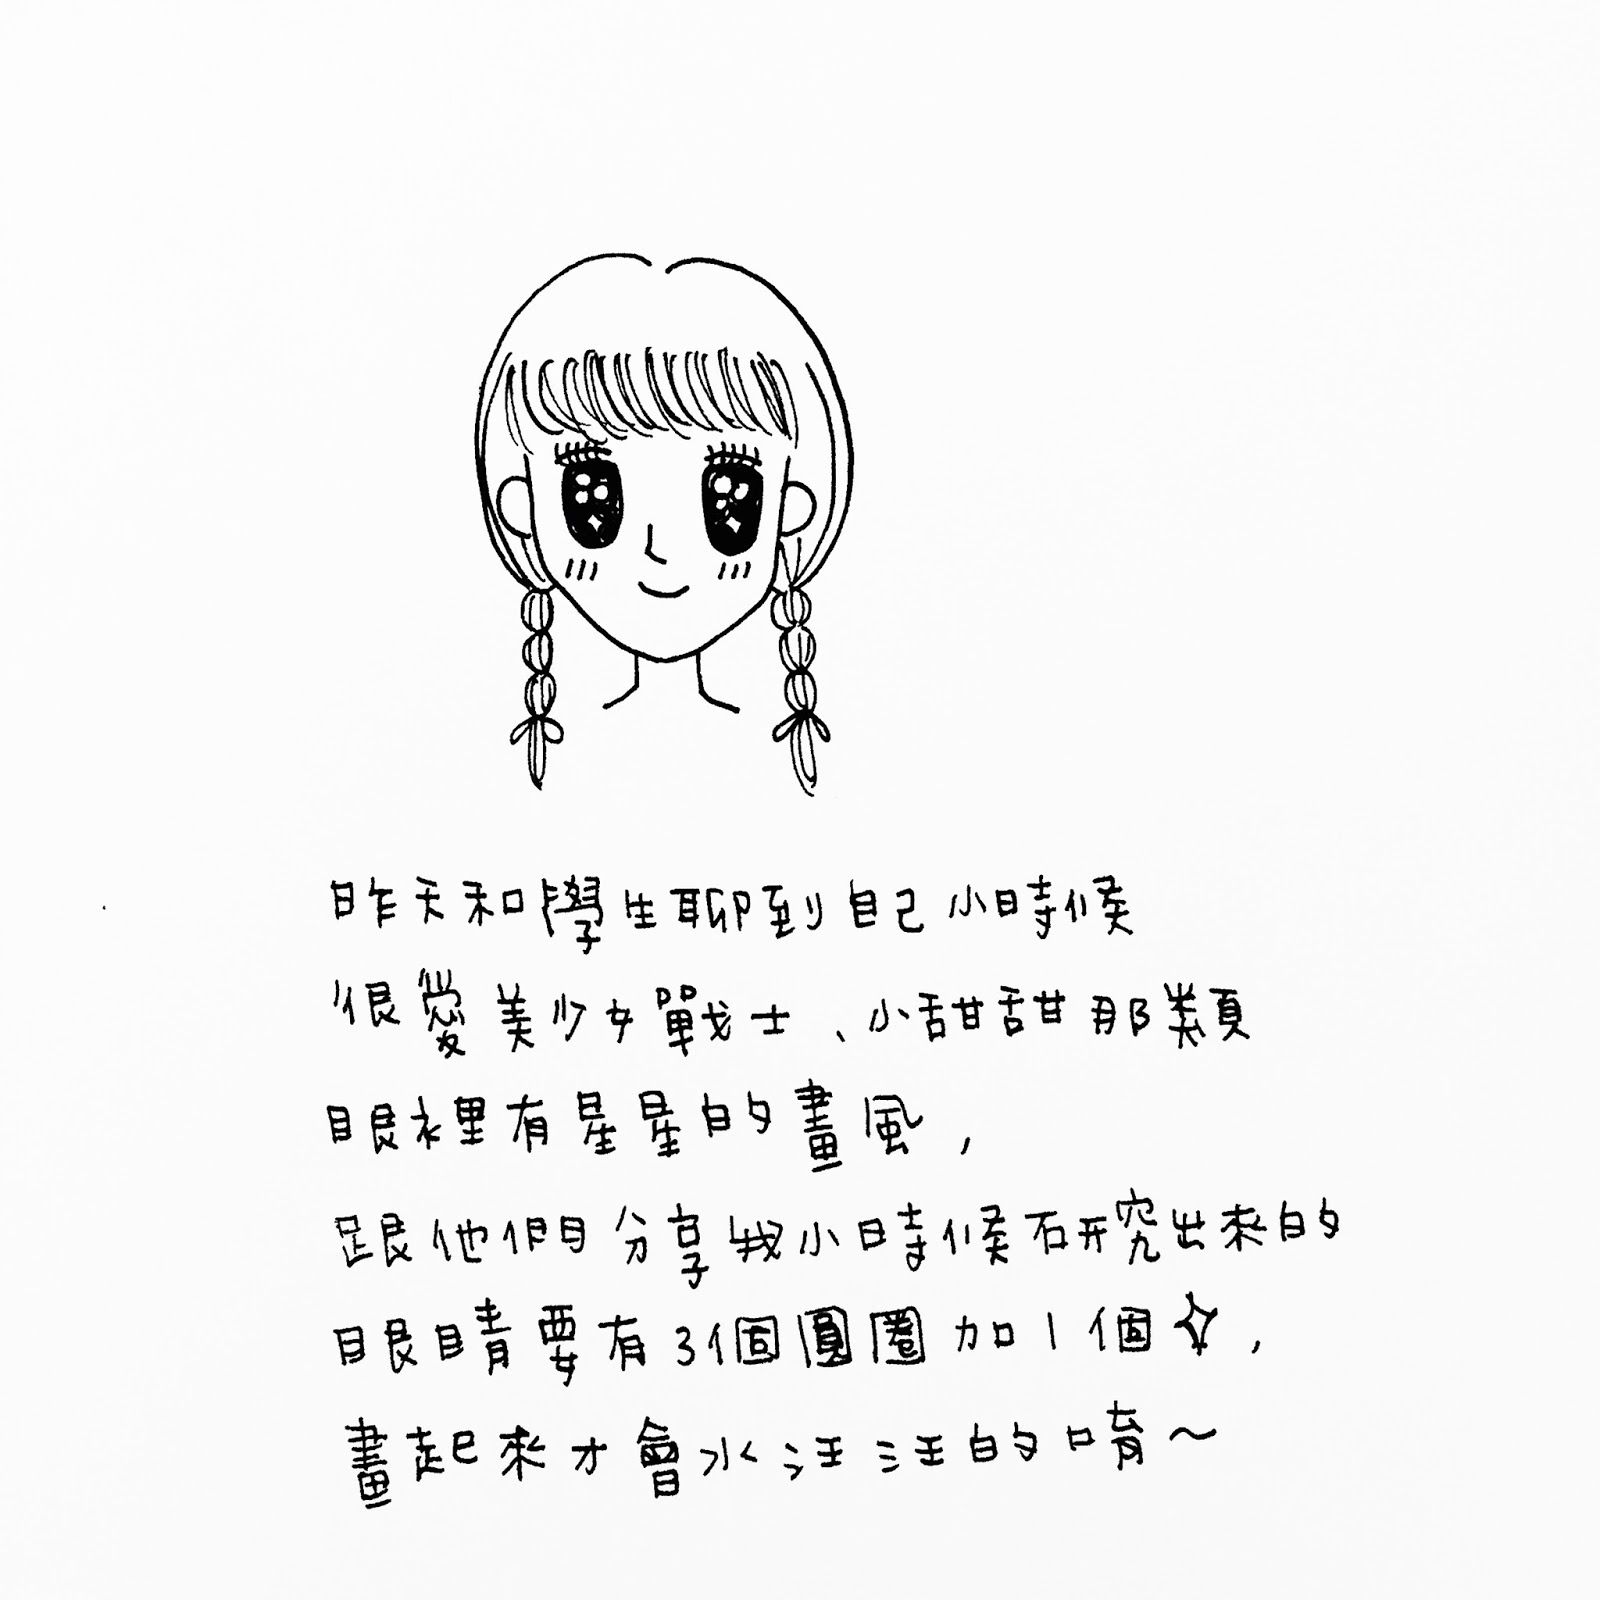 昨天和學生聊到自己小時候
很愛美少女戰士、小甜甜那類
眼裡有星星的畫風,
跟他們分享我小時候研究出來的
眼睛要有3個圓圈加1個✧,
畫起來才會水汪汪的唷~